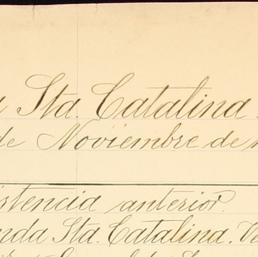 Sta. Catalina
de Noviembre de
istencia anterior.
nda Sta. Catalina. V